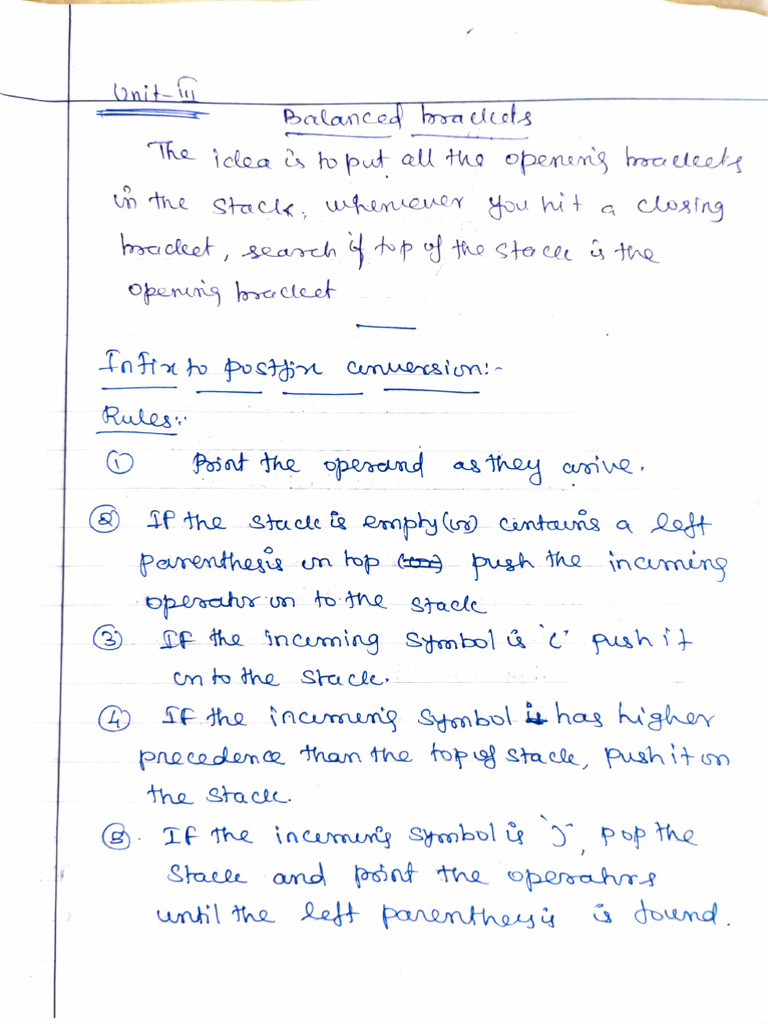 Unit-III
Balanced brackets
The idea is to put all the opening brackets
in the stack, whenever you hit a closing
bracket, search if top of the stack is the
opening bracket
Infix to postfix conversion:-
Rules:-
① Print the operand as they arive.
② If the stack is empty (or) contains a left
parenthesis on top (or) push the incoming
operator on to the stack
③ If the incoming symbol is '(' push it
on to the stack.
④ If the incoming symbol is has higher
precedence than the top of stack, push it on
the stack.
⑤. If the incoming symbol is ')', pop the
stack and print the operators
until the left parenthesis is found.